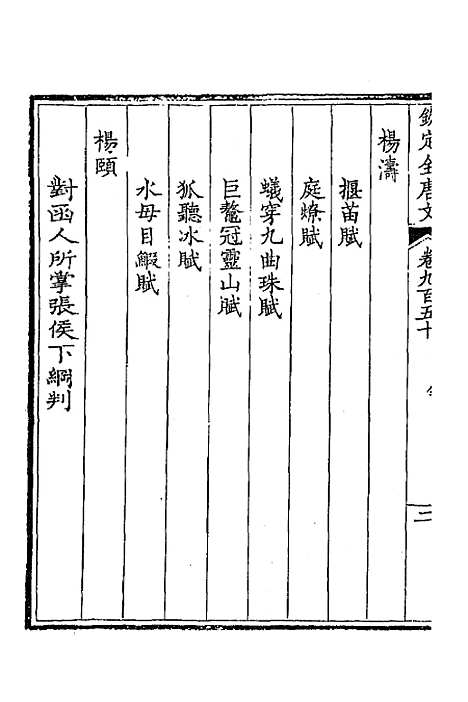 欽定全唐文 卷九百五十 二
楊濤
揠苗賦
庭燎賦
蟻穿九曲珠賦
巨鼇冠靈山賦
狐聽冰賦
水母目鰕賦
楊頤
對函人所掌張侯下綱判